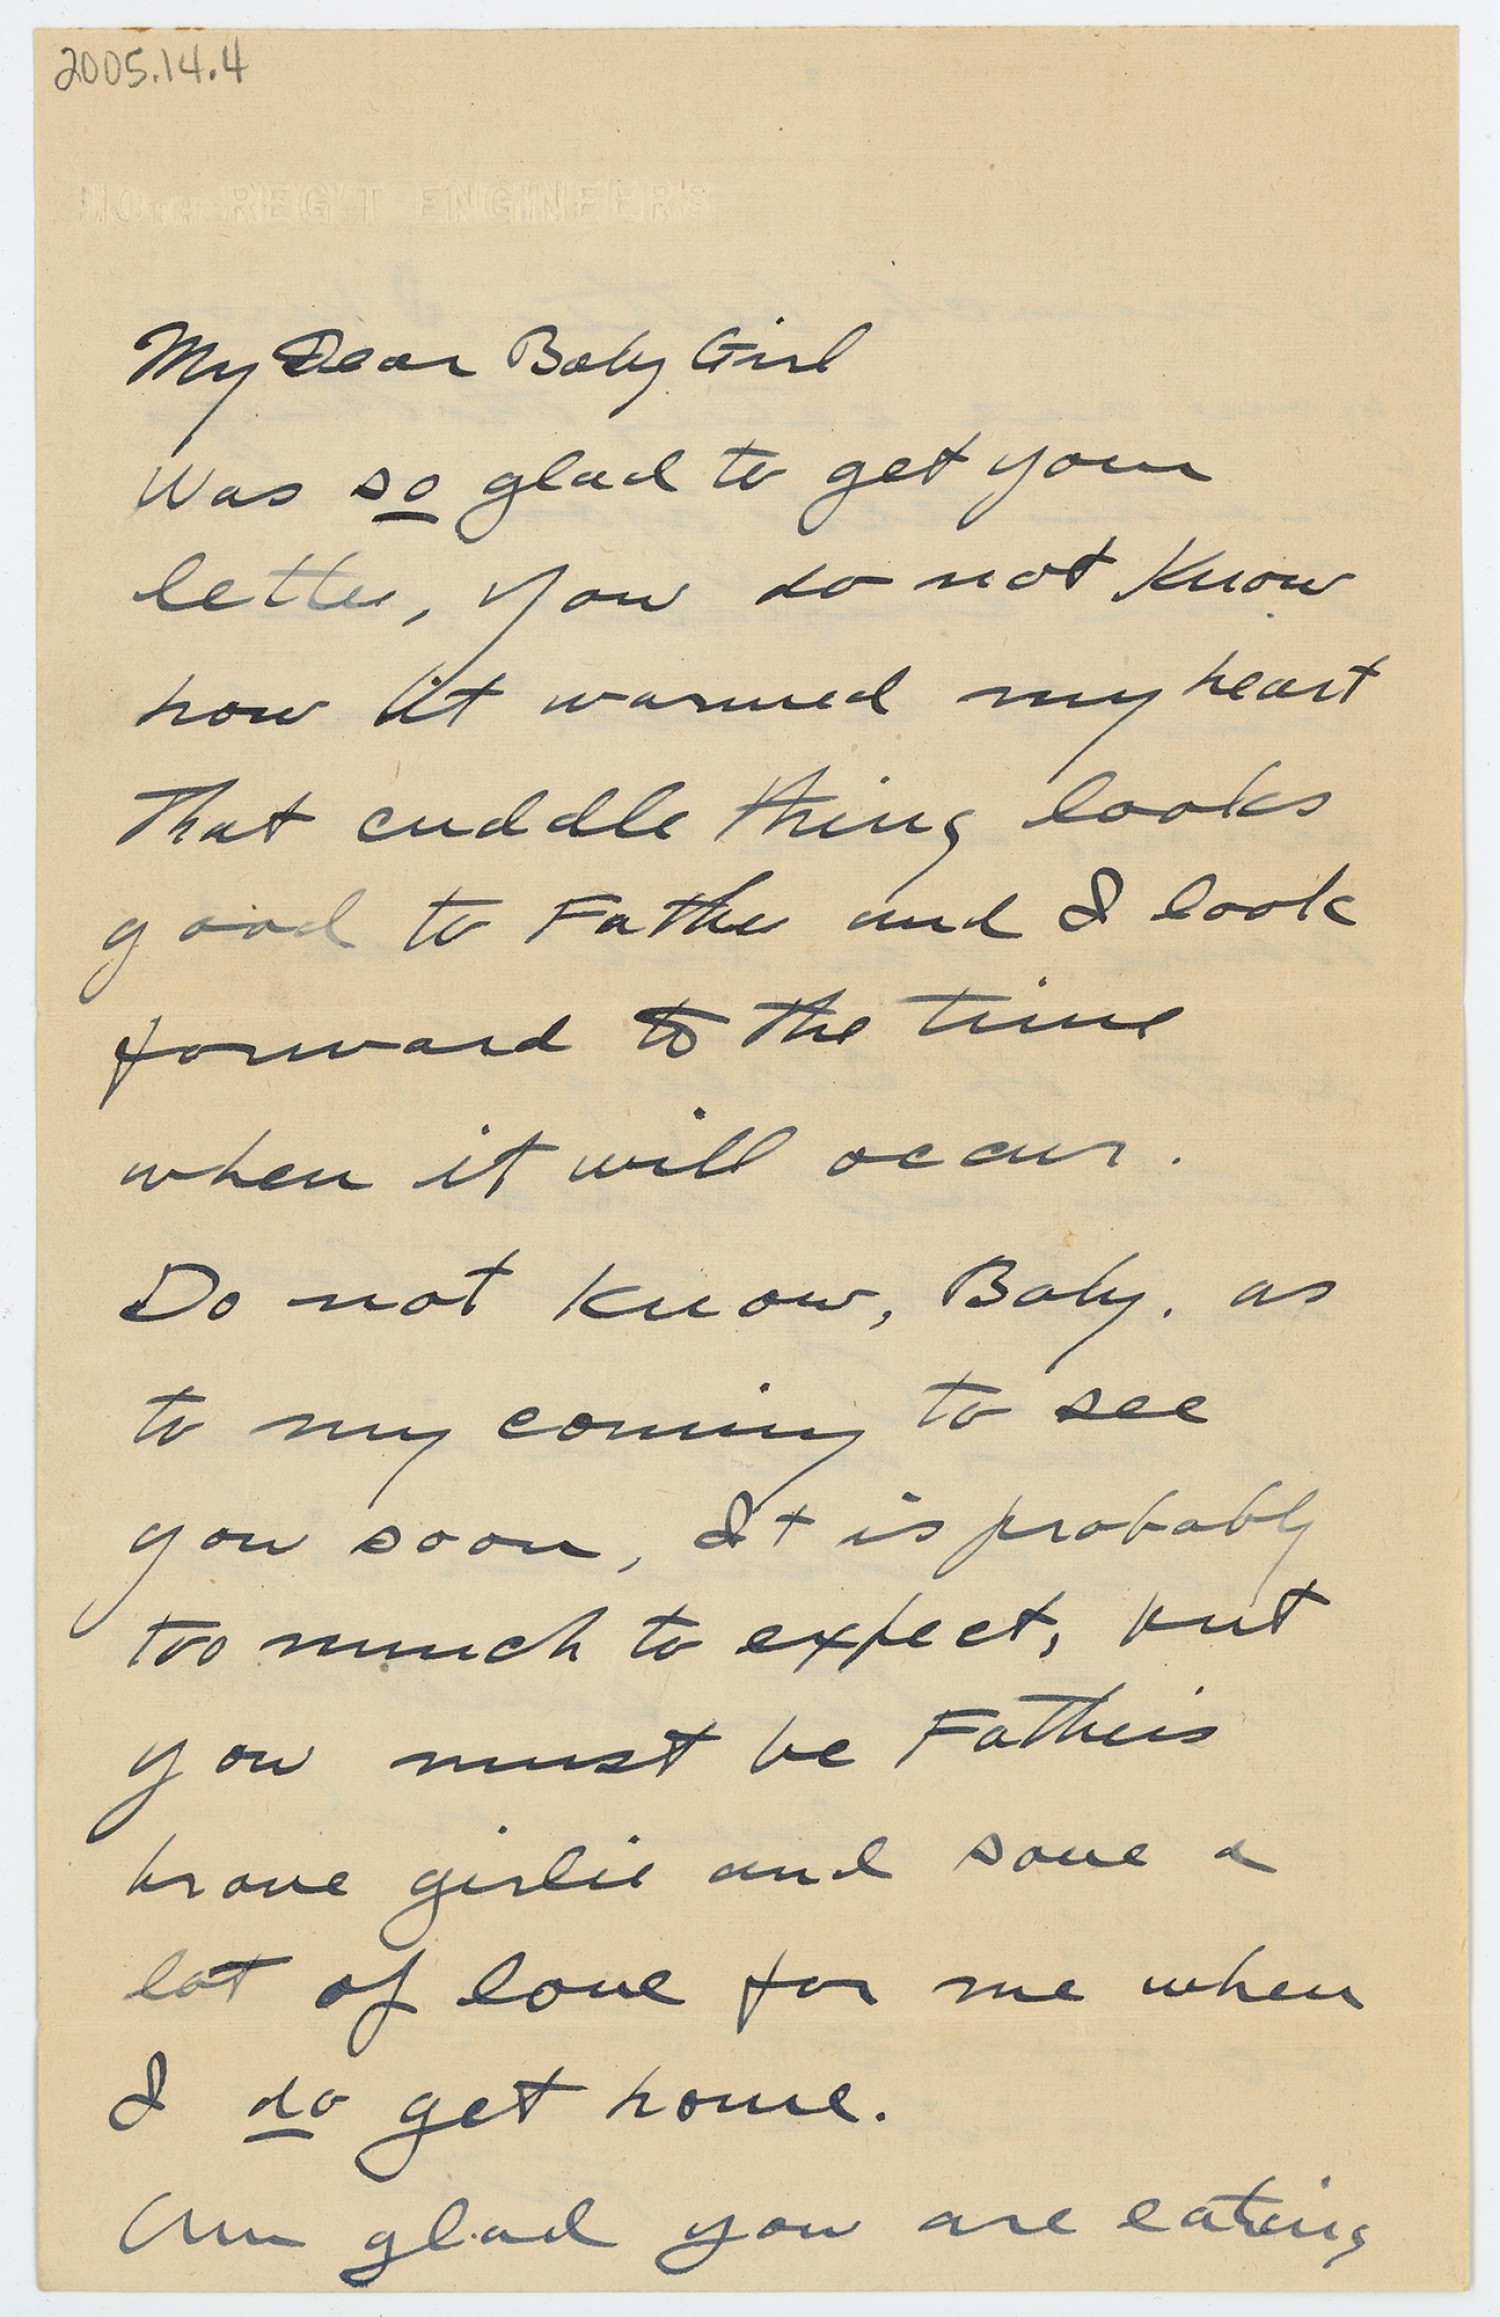 2005.14.4
110TH REG'T ENGINEERS
My Dear Baby Girl
Was so glad to get your
letter, you do not know
how it warmed my heart
That cuddle thing looks
good to Father and I look
forward to the time
when it will occur.
Do not know, Baby, as
to my coming to see
you soon, It is probably
too much to expect, but
you must be Father's
brave girlie and save a
lot of love for me when
I do get home.
Am glad you are eating